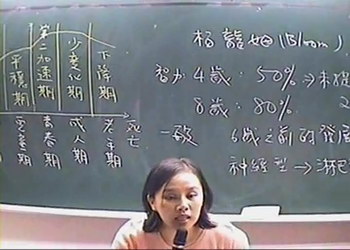 平穩期
第二加速期
少變化期
下降期
兒童期
青春期
成人期
老年期
死亡
(Bloom)
智力4歲：50% ⇒ 未
8歲：80%
一致
6歲之前的發展
神經型 → 淋巴